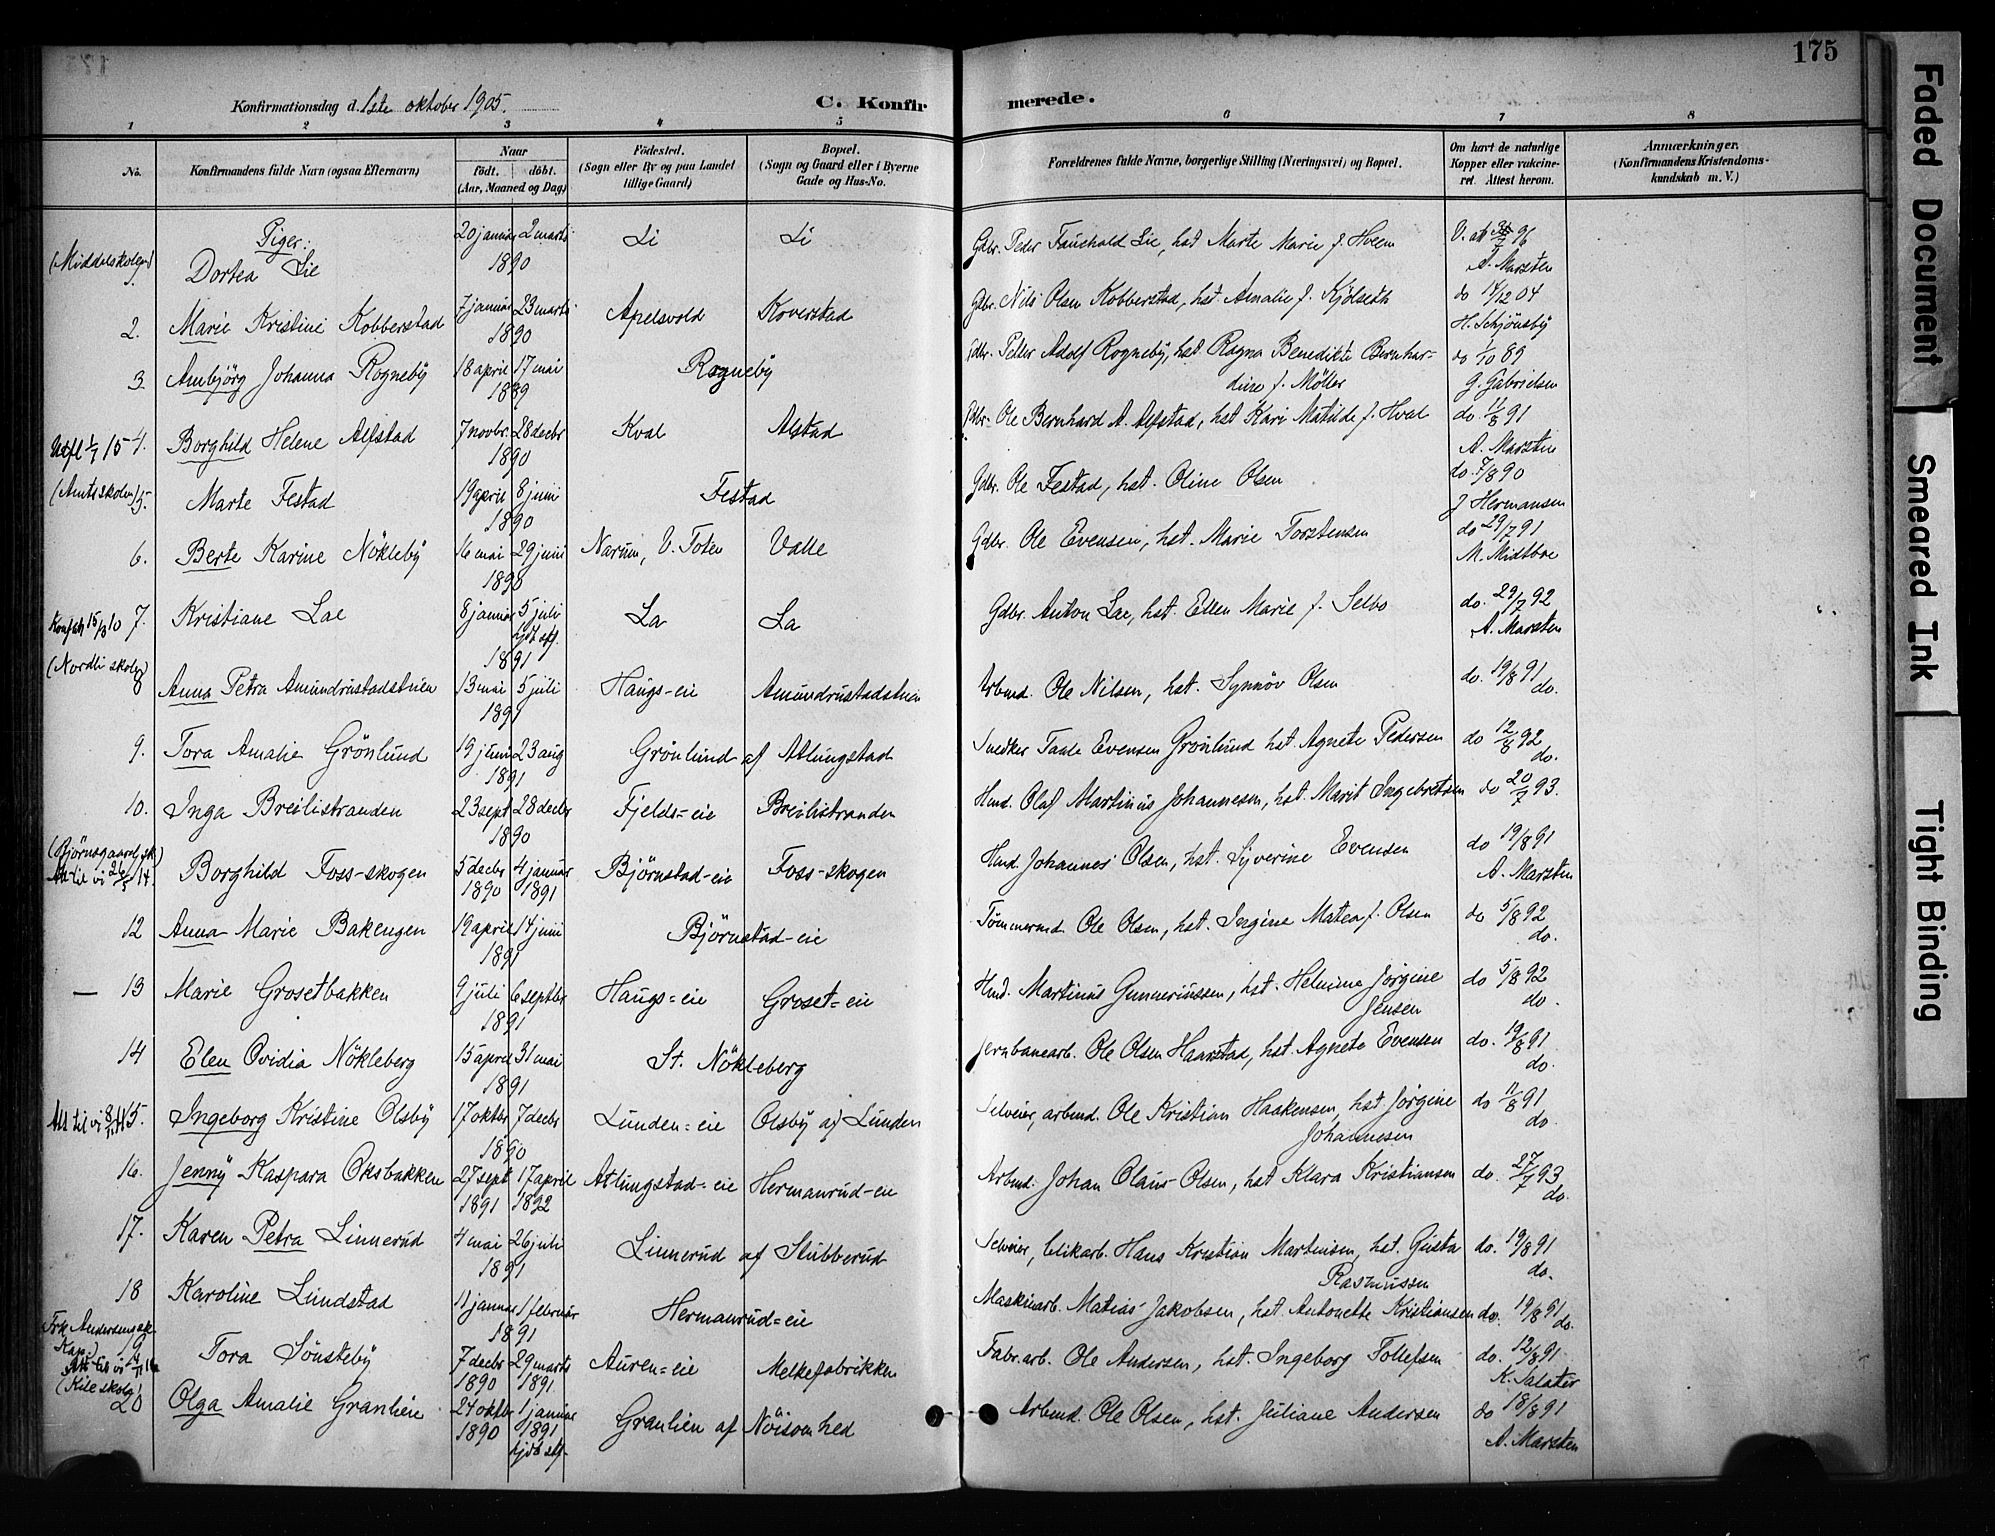 175
Konfirmationsdag d. 1ste oktober 1905.
C. Konfirmerede.
1 2 3 4 5 6 7 8
No.
Konfirmandens fulde Navn (ogsaa Efternavn)
Naar
födt. döbt.
(Aar, Maaned og Dag)
Födested.
(Sogn eller By og paa Landet
tillige Gaard)
Bopæl.
(Sogn og Gaard eller i Byerne
Gade og Hus-No.
Forældrenes fulde Navne, borgerlige Stilling (Næringsvei) og Bopæl.
Om havt de naturlige
Kopper eller vakcine-
ret. Attest herom.
Anmærkninger.
(Konfirmandens Kristendoms-
kundskab m. V.)
Piger:
(Middelskolen) 1. Dortea Lie 20 januar 2 marts 1890 Li Li Gdbr. Peder Faushald Lie, hst Marte Marie f. Hveem V. att 96
A. Marsten
2. Marie Kristine Kobberstad 7 januar 23 marts 1890 Apelsvold Koverstad Gdbr. Nils Olsen Kobberstad, hst. Amalie f. Kjölseth do 14/12 04
H. Schjönsby
3. Ambjörg Johanna Rogneby 18 april 17 mai 1889 Rogneby Gdbr. Petter Adolf Rogneby, hst Ragna Benedikte Bernhar-
dine f. Möller do 1/10 89
G. Gabrielsen
Utfl 1/7 15 4. Borghild Helene Alfstad 7 novbr. 28 decbr 1890 Kval Alstad Gdbr. Ole Bernhard A. Alfstad, hst Kari Matilde f. Hval do. 11/8 91
A. Marsten
(Amtsskolen) 5. Marte Festad 19 april 8 juni 1890 Festad Gdbr. Ole Festad, hst. Oline Olsen do. 7/8 90
J Hermansen
6. Berte Karine Nökleby 16 mai 29 juni 1890 Narum, V. Toten Valle Gdbr. Ole Evensen, hst. Marie Torstensen do 29/7 91
M. Midtboe
15/3 10 7. Kristiane Lae 8 januar 5 juli 1891 La La Gdbr. Anton Lae, hst. Ellen Marie f. Selbo do. 29/7 92
A. Marsten
(Nordli skole) 8 Anna Petra Amundrustadstuen 13 mai 5 juli 1891 Haugs-eie Amundrustadstuen Arbmd. Ole Nilsen, hst. Synnöv Olsen do. 19/8 91
do.
9. Tora Amalie Grönlund 19 juni 23 aug 1891 Grönlund af Atlungstad Snedker Taale Evensen Grönlund hst. Agnete Pedersen do 12/8 92
do.
10. Inga Breilistranden 23 sept 28 decbr 1890 Fjelds-eie Breilistranden Hmd. Olaf Martinus Johannesen, hst. Marit Ingebretsen do 20/7 93.
(Björnsgaard sk.)
Borghild Foss-skogen 5 decbr 1890 4 januar 1891 Björnstad-eie Foss-skogen Hmd. Johannes Olsen, hst. Syverine Evensen do 19/8 91
A. Marsten
12 Anna Marie Bakengen 19 april 14 juni 1891 Björnstad-eie Tömmermd. Ole Olsen, hst. Ingine Matea f. Olsen do 5/8 92
do.
— 13 Marie Grosetbakken 9 juli 6 septbr 1891 Haugs-eie Groset-eie Hmd. Martinus Gunneriussen, hst. Helmine Jörgine
Jensen do 5/8 92
do.
14 Elen Ovidia Nökleberg 15 april 31 mai 1891 St. Nökleberg Jernbanearb. Ole Olsen Haarstad, hst. Agnete Evensen do. 19/8 91
do.
15. Ingeborg Kristine Olsby 17 oktbr 7 decbr 1890 Lunden-eie Olsby af Lunden Selveier, arbmd. Ole Kristian Haakensen, hst Jörgine
Johannesen do 11/8 91
do.
16. Jenny Kaspara Oksbakken 27 sept 1891 17 april 1892 Atlungstad-eie Hermanrud-eie Arbmd. Johan Olaus Olsen, hst Klara Kristiansen do. 27/7 93
do.
17. Karen Petra Linnerud 4 mai 26 juli 1891 Linnerud af Stubberud Selveier, blikarb. Hans Kristian Martinsen, hst. Gusta
Rasmussen do. 19/8 91
do.
18 Karoline Lundstad 11 januar 1 februar 1891 Hermanrud-eie Maskinarb. Matias Jakobsen, hst Antonette Kristiansen do. 19/8 91
do.
19 Tora Sönsteby 7 decbr 1890 29 marts 1891 Auren-eie Melkefabrikken Fabr.arb. Ole Andersen, hst. Ingeborg Tollefsen do. 12/8 91
K. Salater
(Kile skole) 20 Olga Amalie Granlien 24 oktbr 1890 1 januar 1891 Granlien af Nöisomhed Arbmd. Ole Olsen, hst. Juliane Andersen do 18/8 91
A. Marsten
Faded Document
Smeared Ink
Tight Binding